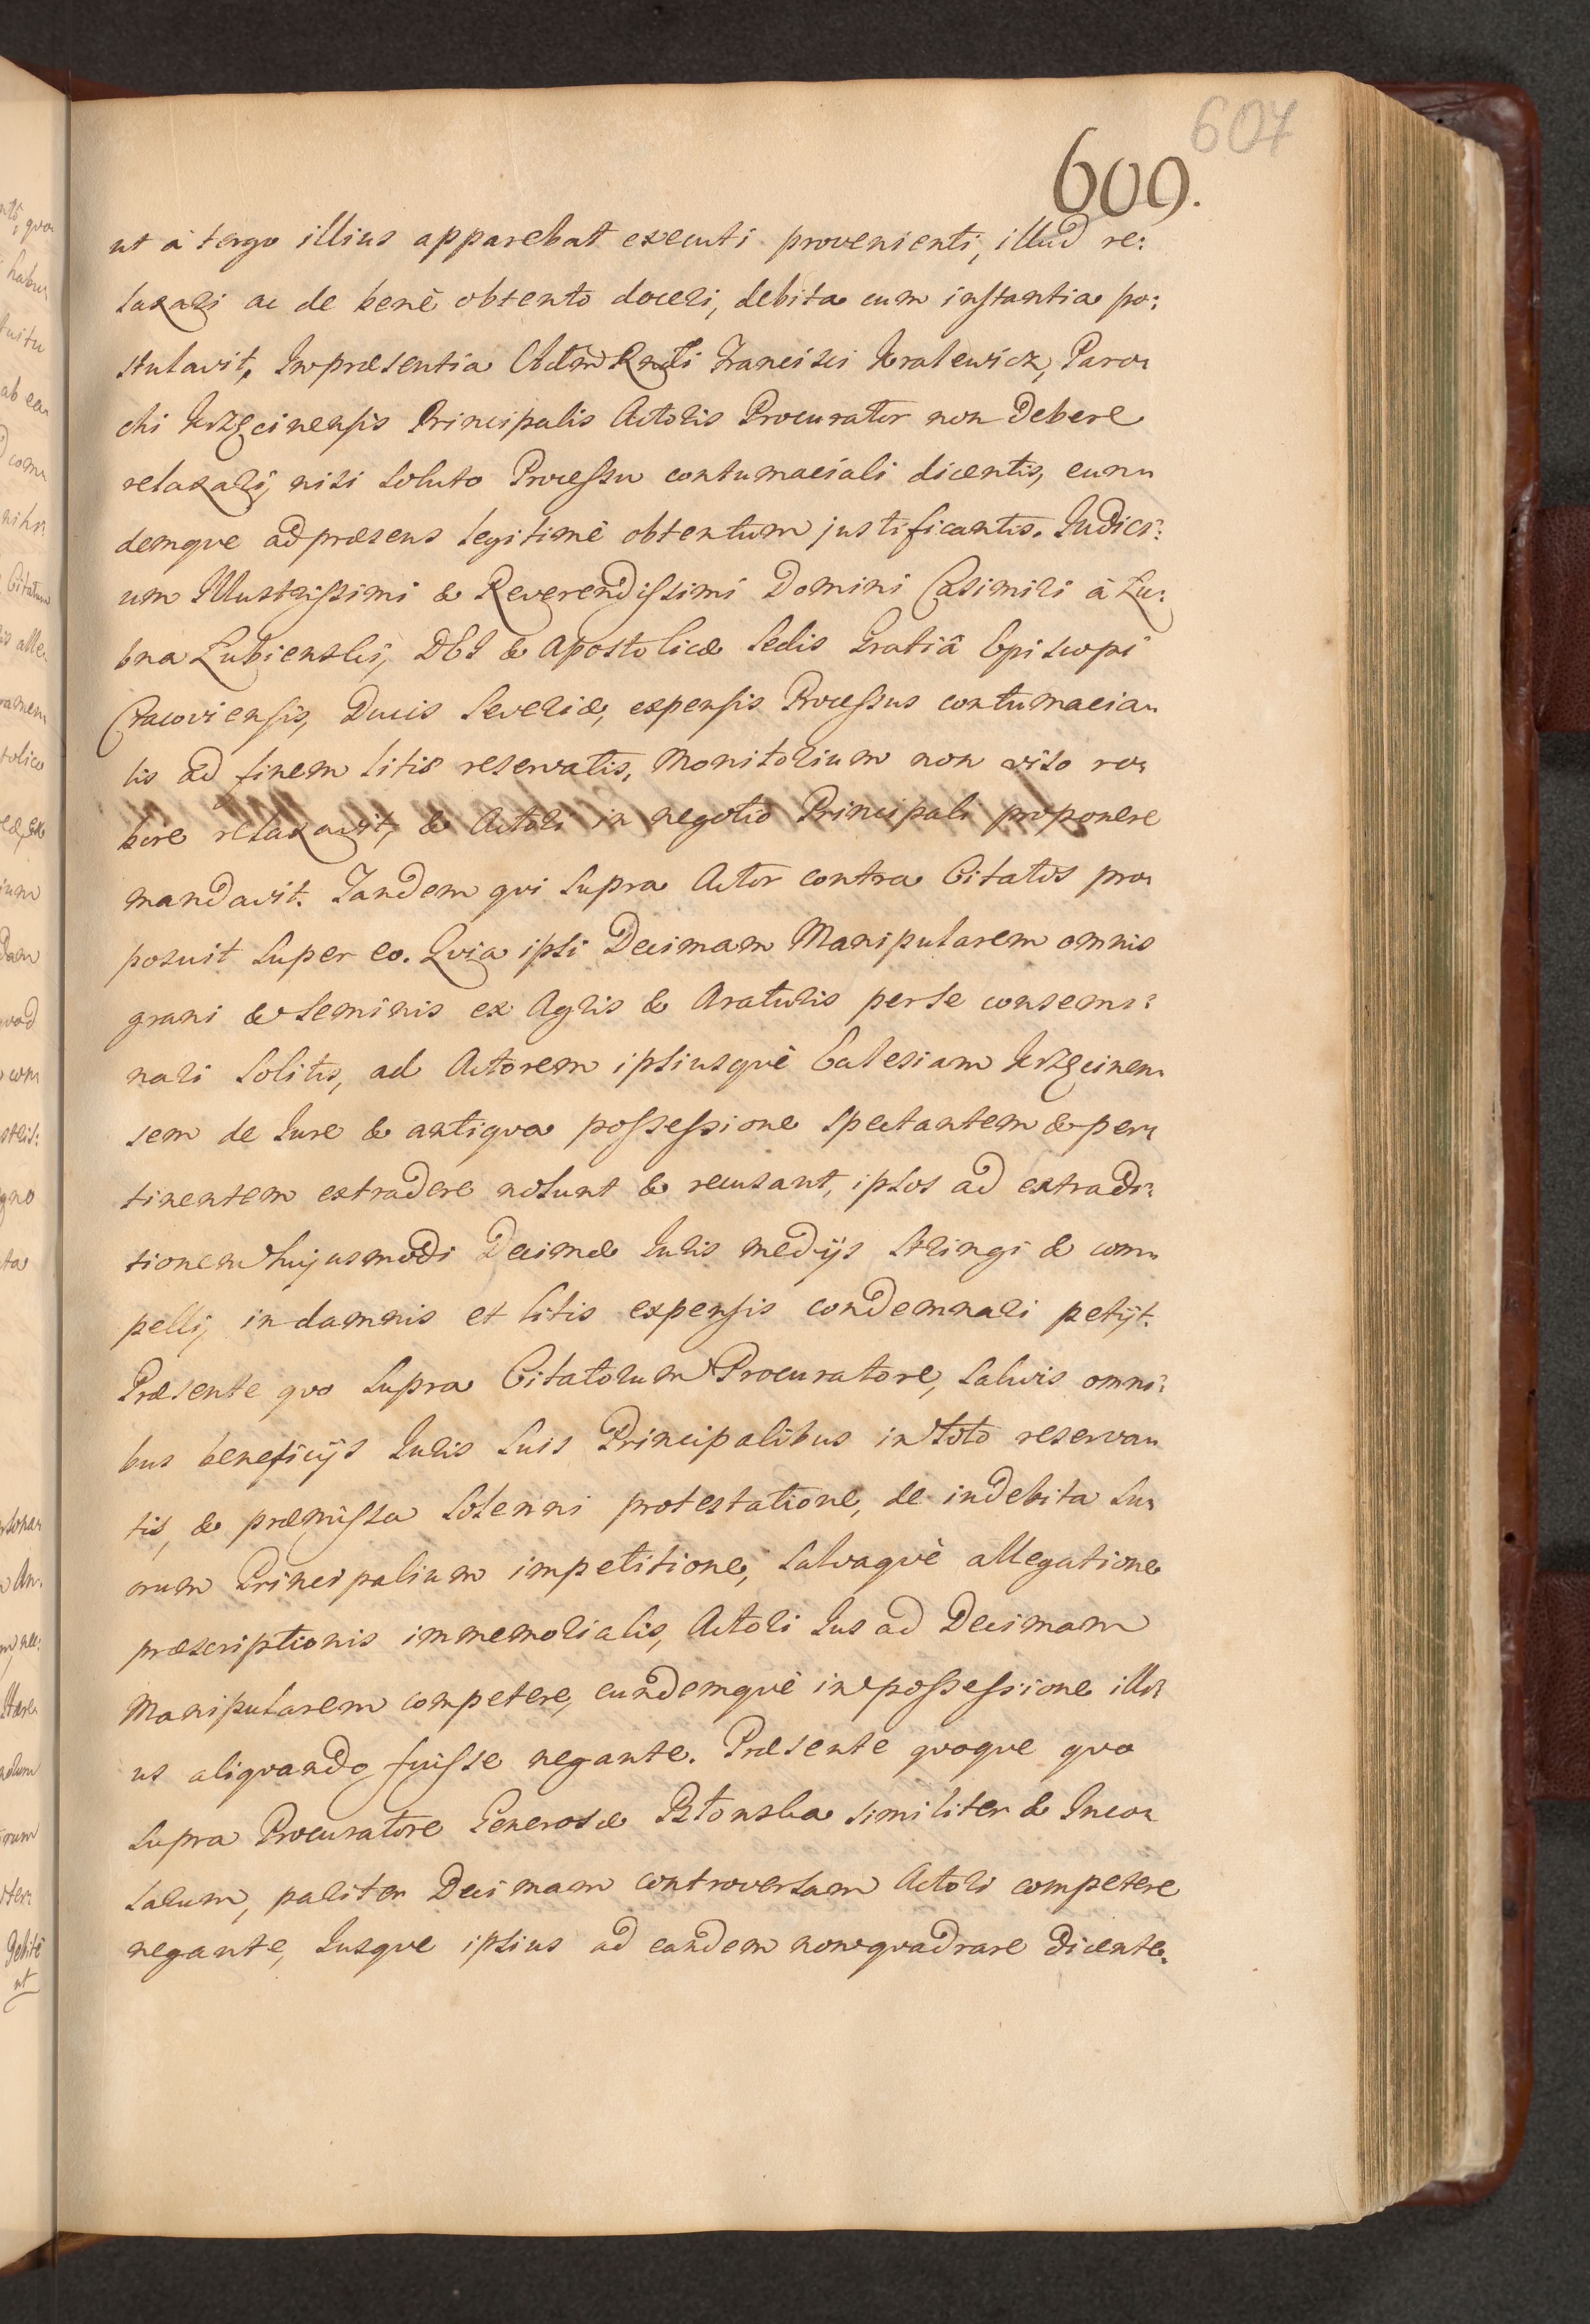 607
609.
ut à tergo illius apparebat executi provenienti, illud re:
laxari ac de benè obtento doceri, debita cum instantia po:
stulavit, In præsentia Francisci Kralewicz, Paro:
chi Krzęcinensis Principalis Actoris Procurator non debere
relaxari, nisi soluto Processu contumaciali dicentis, eun:
demque ad præsens legitimè obtentum justificantis. Judici:
um Illustrissimi & Reverendissimi Domini Casimiri à Łu:
bna Łubienski, DEI & Apostolicæ Sedis Gratiâ Episcopi
Cracoviensis, Ducis Severiæ, expensis Processus contumacia:
lis ad finem litis reservatis, Monitorium non viso ro:
bore relaxavit, & Actori in negotio Principali proponere
mandavit. Tandem qui supra Actor contra Citatos pro:
posuit super eo. Quia ipsi Decimam Manipularem omnis
grani & seminis ex Agris & Araturis per se consemi:
nari solitis, ad Actorem ipsiusquè Ecclesiam Krzęcinen:
sem de Jure & antiqua possessione spectantem & per:
tinentem extradere nolunt & recusant, ipsos ad extradi:
tionem hujusmodi Decimæ Juris medijs stringi & com:
pelli, in damnis et litis expensis condemnari petijt.
Præsente quo supra Citatorum Procuratore, salvis omni:
bus beneficijs Juris suis Principalibus in toto reservan:
tis, & præmissa solenni protestatione, de indebita su:
orum Principalium impetitione, salvaquè allegatione
præscriptionis immemorialis, Actori Jus ad Decimam
Manipularem competere, eundemquè in possessione illi:
us aliquando fuisse negante. Præsente quoque quo
supra Procuratore Generosæ similiter & Inco:
larum, pariter Decimam controversam Actori competere
negante, Jusque ipsius ad eandem non quadrare dicente.